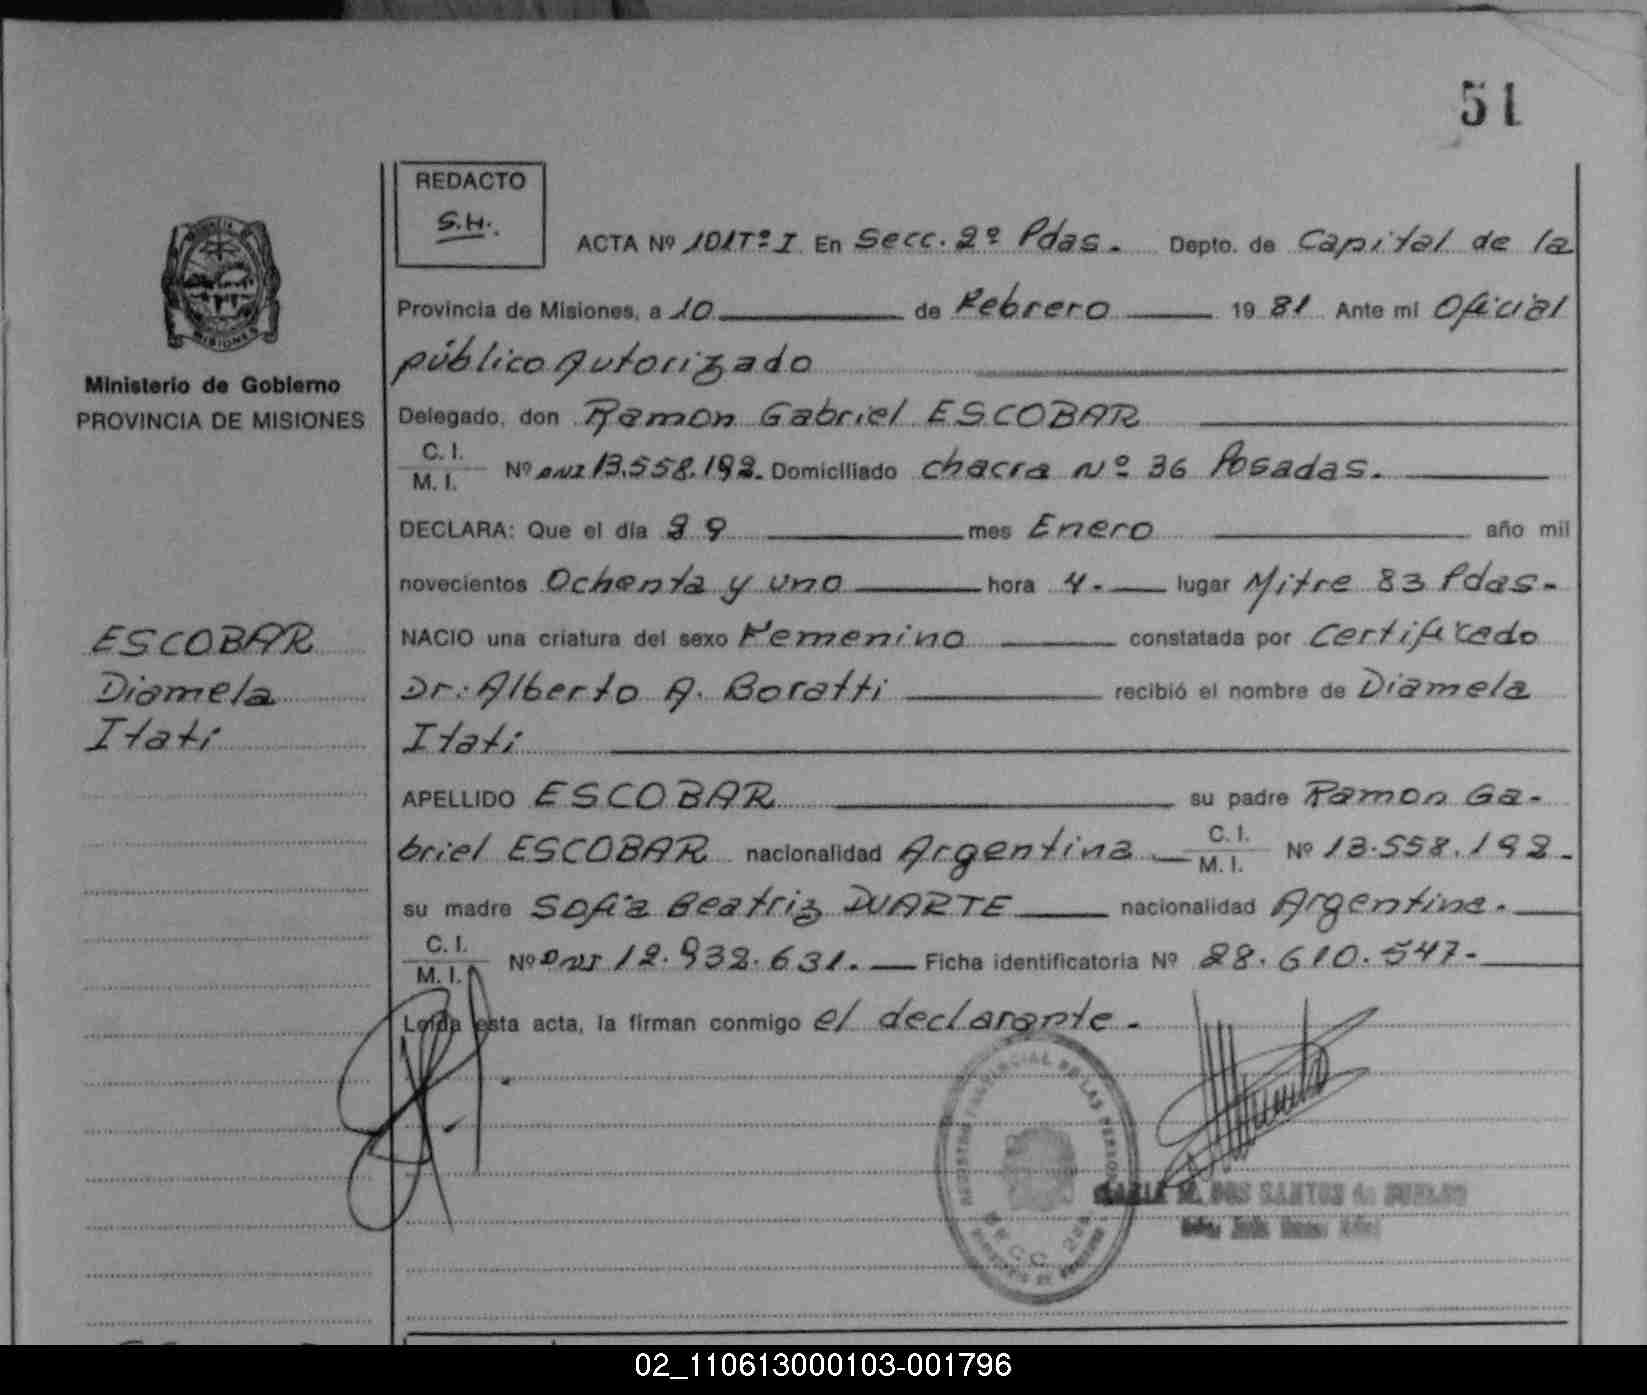 51
REDACTO
S.H.
ACTA Nº 101Tº I En Secc. 2º Pdas. Depto. de Capital de la
Provincia de Misiones, a 10 de Febrero 1981 Ante mi Oficial
público Autorizado
Ministerio de Gobierno
PROVINCIA DE MISIONES
Delegado, don Ramon Gabriel ESCOBAR
C. I.
M. I. Nº DNI 13.558.192. Domiciliado chacra Nº 36 Posadas.
DECLARA: Que el día 29 mes Enero año mil
novecientos Ochenta y uno hora 4. lugar Mitre 83 Pdas.
NACIO una criatura del sexo Femenino constatada por Certificado
Dr: Alberto A. Boratti recibió el nombre de Diamela
Itati
ESCOBAR
Diamela
Itati
APELLIDO ESCOBAR su padre Ramon Ga-
briel ESCOBAR nacionalidad Argentina C. I.
M. I. Nº 13.558.192.
su madre Sofía Beatriz DUARTE nacionalidad Argentina.
C. I.
M. I. Nº DNI 12.932.631. Ficha identificatoria Nº 28.610.547.
Leída esta acta, la firman conmigo el declarante.
DOS SANTOS de
02_110613000103-001796